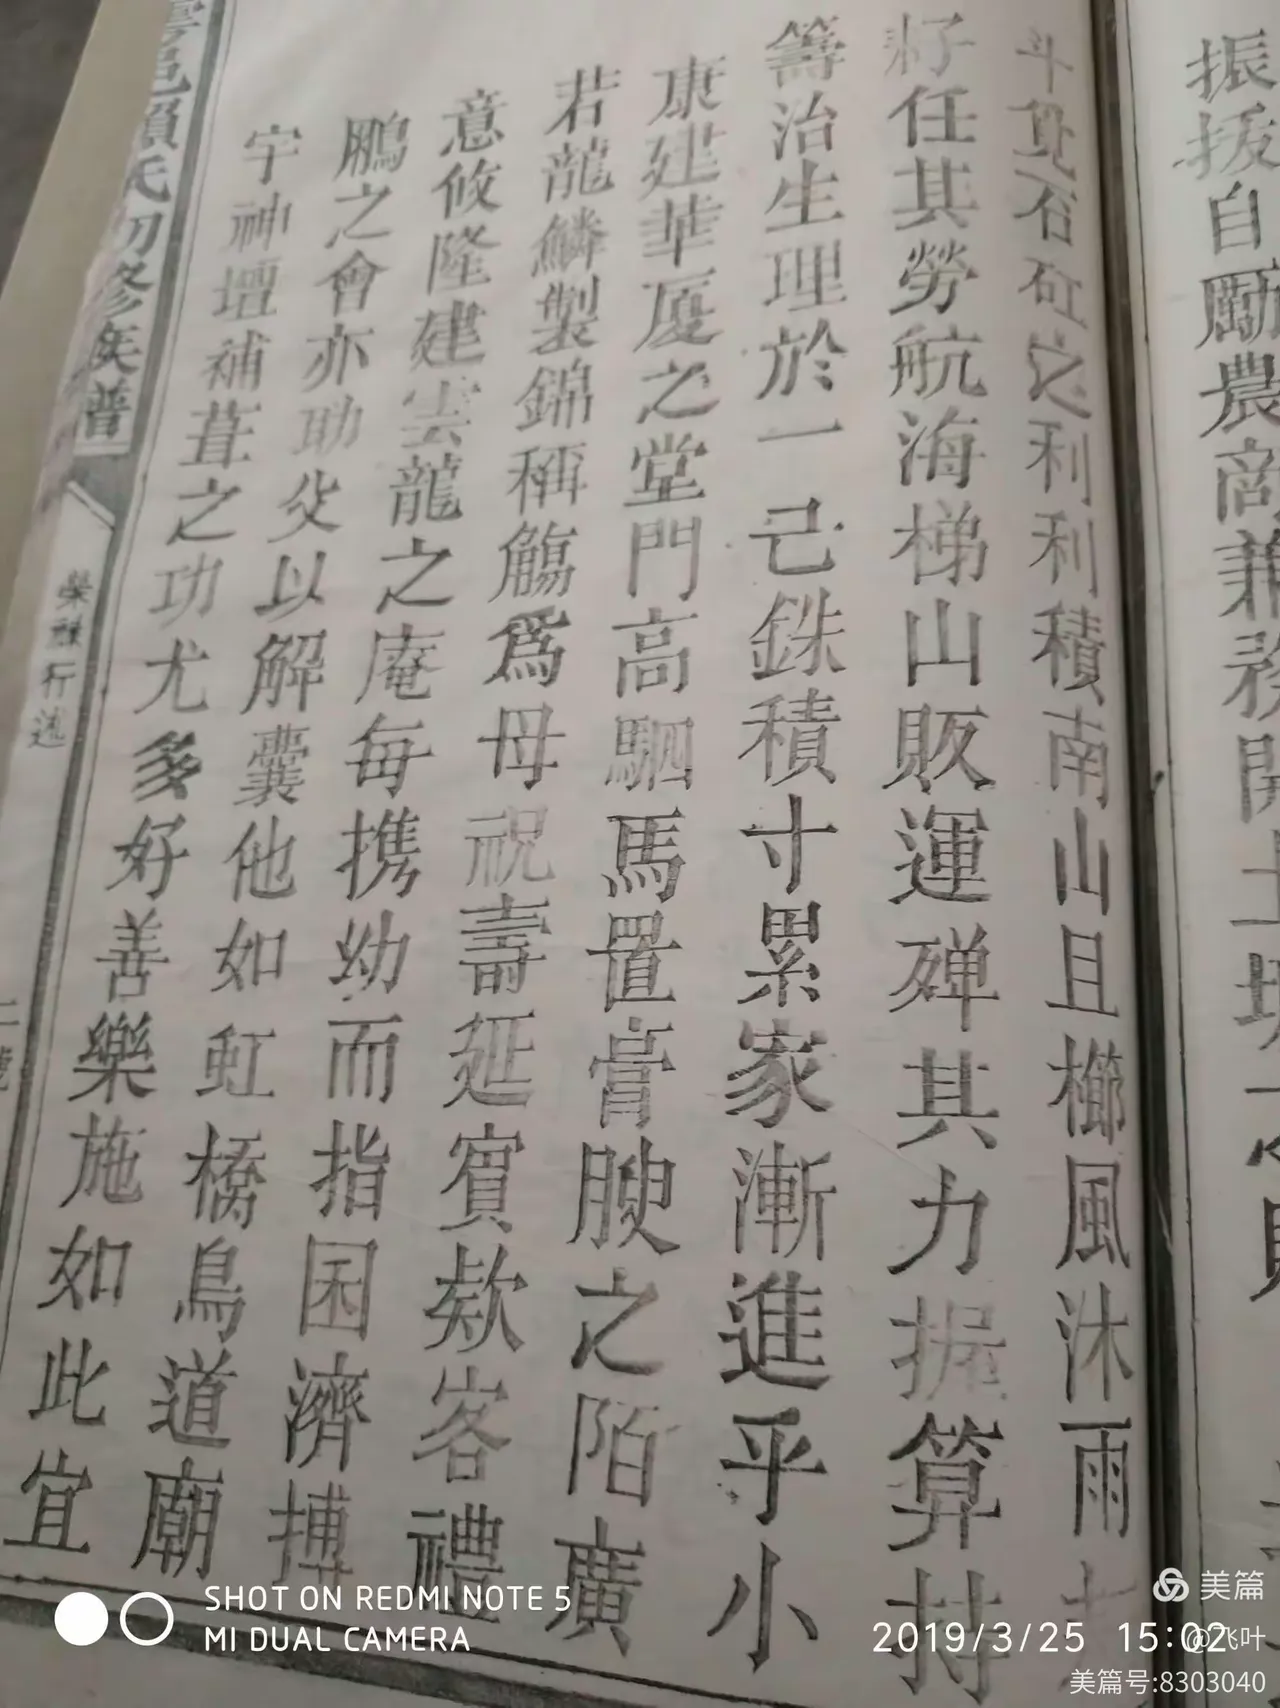 振拔自勵農商兼務開土
斗筧石矼之利利積南山且櫛風沐雨
籽任其勞航海梯山販運殫其力握算持
籌治生理於一己銖積寸累家漸進乎小
康建華厦之堂門高駟馬置膏腴之陌廣
若龍鱗製錦稱觴爲母祝壽延賓欵客禮
意攸隆建雲龍之庵每携幼而指囷濟摶
鵬之會亦助父以解囊他如虹橋鳥道廟
宇神壇補葺之功尤多好善樂施如此宜
雩邑賴氏初修族譜
榮
行述
SHOT ON REDMI NOTE 5
MI DUAL CAMERA
2019/3/25 15:02
美篇
@飞叶
美篇号:8303040